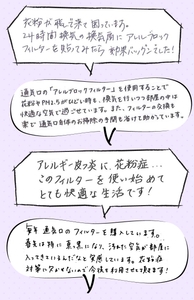 花粉が飛んで来て困っています。
24時間換気の換気扇にアレルブロック
フィルターを貼ってみたら効果バツグンでした!
通気口の「アレルブロックフィルター」を使用することで
花粉やPM2.5がひどい時も、換気を行いつつ部屋の中は
快適な空気で過ごせています。また、フィルターの交換も
楽で通気口自体のお掃除の手間も省けて助かっています。
アレルギー皮フ炎に、花粉症…
このフィルターを使い始めて
とても快適な生活です!
毎年通気口のフィルターを購入しています。
春先は特に真っ黒になり、汚れた空気が部屋に
入ってきているんだなと実感しています。花粉症
対策に欠かせないので今後も利用させて頂きます!